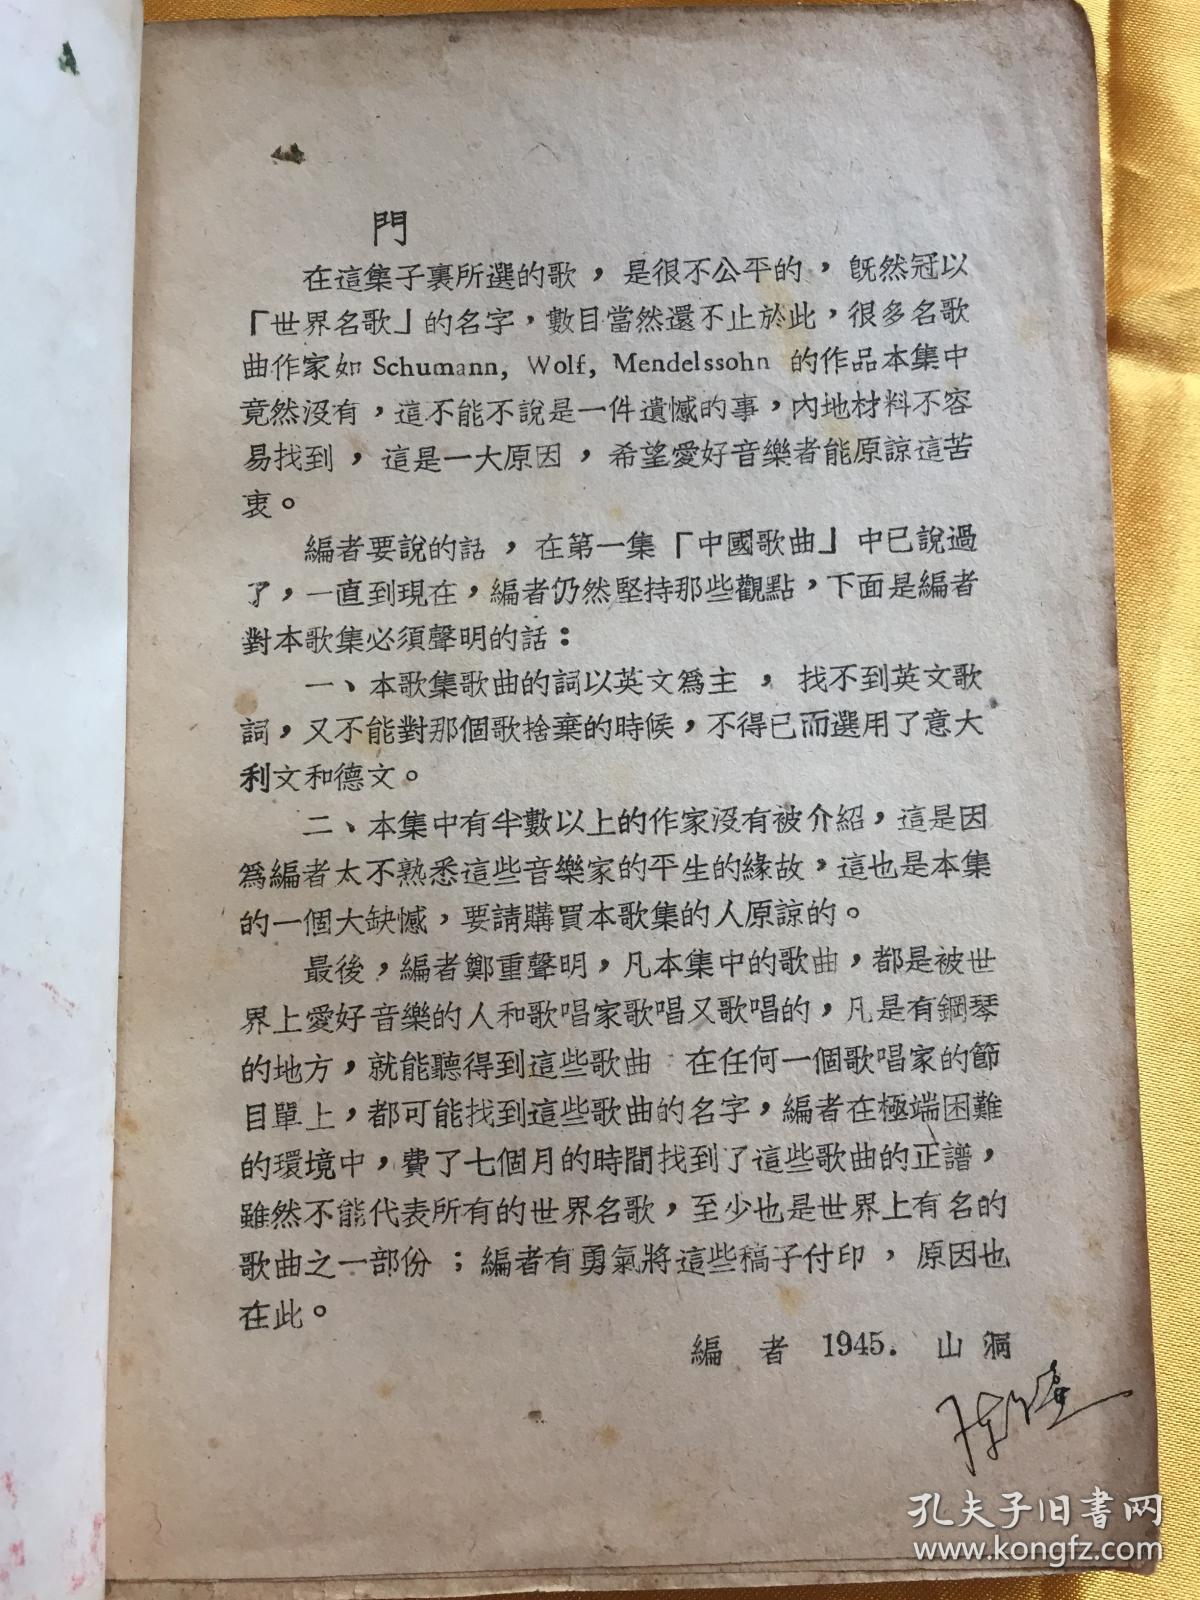 門
在這集子裏所選的歌，是很不公平的，旣然冠以
「世界名歌」的名字，數目當然還不止於此，很多名歌
曲作家如 Schumann, Wolf, Mendelssohn 的作品本集中
竟然沒有，這不能不說是一件遺憾的事，內地材料不容
易找到，這是一大原因，希望愛好音樂者能原諒這苦
衷。
編者要說的話，在第一集「中國歌曲」中已說過
了，一直到現在，編者仍然堅持那些觀點，下面是編者
對本歌集必須聲明的話：
一、本歌集歌曲的詞以英文爲主，找不到英文歌
詞，又不能對那個歌捨棄的時候，不得已而選用了意大
利文和德文。
二、本集中有半數以上的作家沒有被介紹，這是因
爲編者太不熟悉這些音樂家的平生的緣故，這也是本集
的一個大缺憾，要請購買本歌集的人原諒的。
最後，編者鄭重聲明，凡本集中的歌曲，都是被世
界上愛好音樂的人和歌唱家歌唱又歌唱的，凡是有鋼琴
的地方，就能聽得到這些歌曲 在任何一個歌唱家的節
目單上，都可能找到這些歌曲的名字，編者在極端困難
的環境中，費了七個月的時間找到了這些歌曲的正譜，
雖然不能代表所有的世界名歌，至少也是世界上有名的
歌曲之一部份；編者有勇氣將這些稿子付印，原因也
在此。
編者 1945. 山洞
孔夫子旧书网
www.kongfz.com